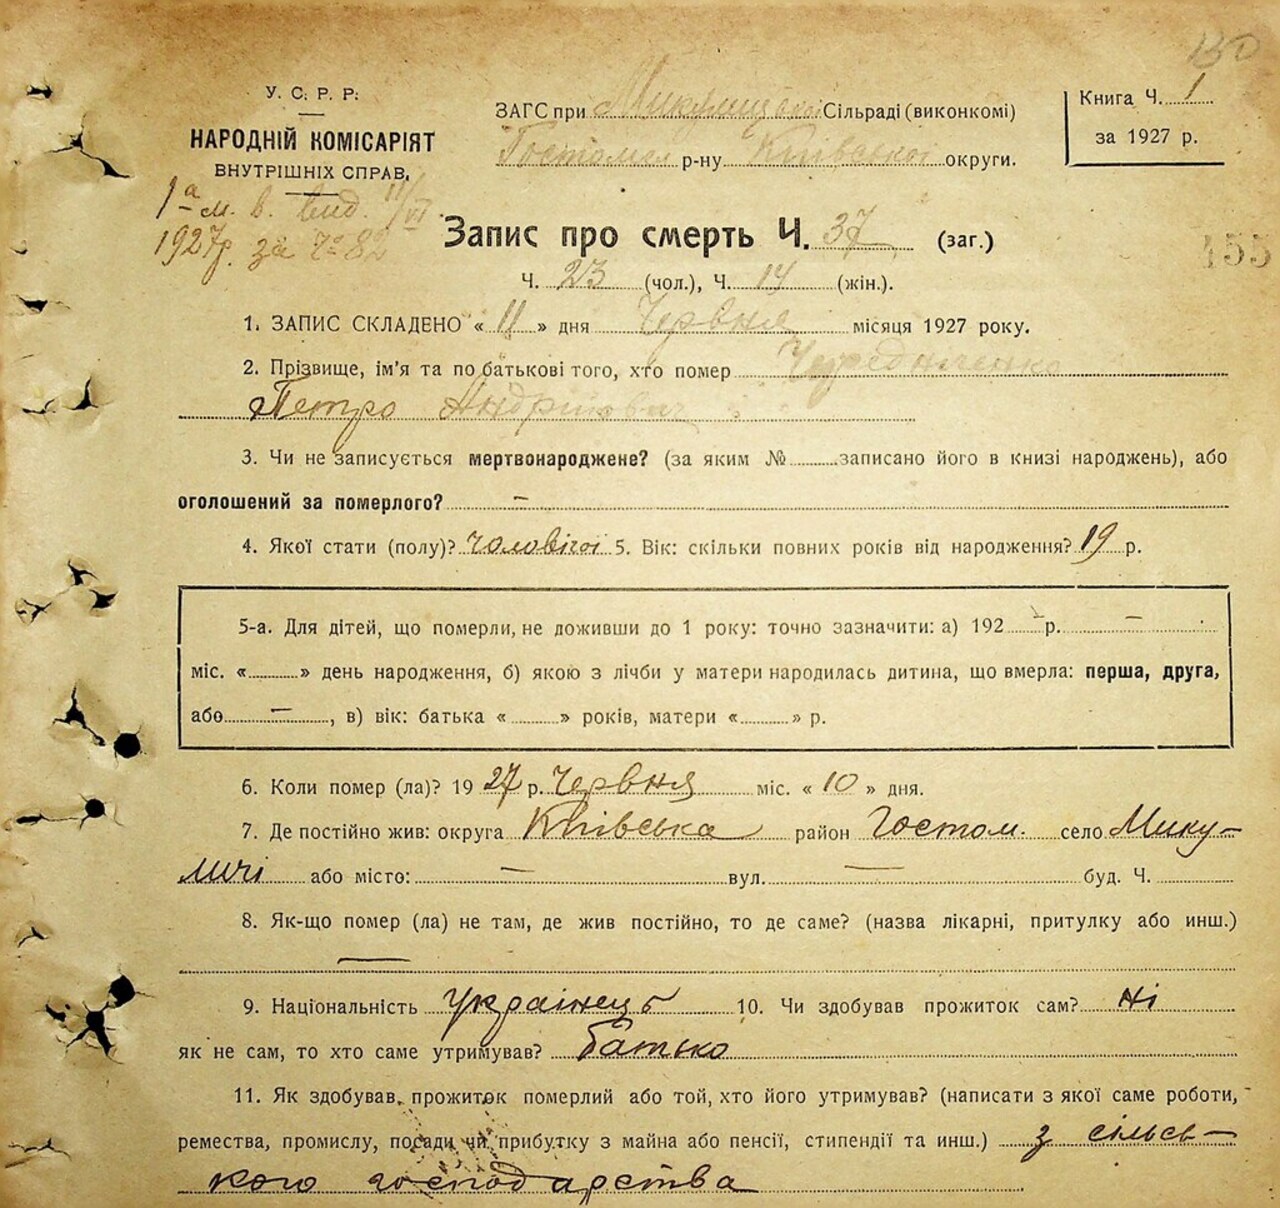 130
У. С. Р. Р.
НАРОДНІЙ КОМІСАРІЯТ
ВНУТРІШНІХ СПРАВ,
ЗАГС при Микулицької Сільраді (виконкомі)
Гостомел р-ну Київської округи.
Книга Ч. 1
за 1927 р.
1а м. в. вид. 11/VI
1927р. за № 82
Запис про смерть Ч. 37 (заг.)
155
Ч. 23 (чол.), Ч. 14 (жін.).
1. ЗАПИС СКЛАДЕНО « 11 » дня Червня місяця 1927 року.
2. Прізвище, ім'я та по батькові того, хто помер Чередниченко
Петро Андрійович
3. Чи не записується мертвонароджене? (за яким № записано його в книзі народжень), або
оголошений за померлого? –
4. Якої стати (полу)? чоловічої 5. Вік: скільки повних років від народження? 19 р.
5-а. Для дітей, що померли, не доживши до 1 року: точно зазначити: а) 192 р. –
міс. « » день народження, б) якою з лічби у матери народилась дитина, що вмерла: перша, друга,
або –, в) вік: батька « » років, матери « » р.
6. Коли помер (ла)? 1927 р. Червня міс. « 10 » дня.
7. Де постійно жив: округа Київська район Гостом. село Мику-
личі або місто: – вул. – буд. Ч.
8. Як-що помер (ла) не там, де жив постійно, то де саме? (назва лікарні, притулку або инш.)
–
9. Національність Українець 10. Чи здобував прожиток сам? Ні
як не сам, то хто саме утримував? Батько
11. Як здобував прожиток померлий або той, хто його утримував? (написати з якої саме роботи,
ремества, промислу, посади чи прибутку з майна або пенсії, стипендії та инш.) з сільсь-
кого господарства